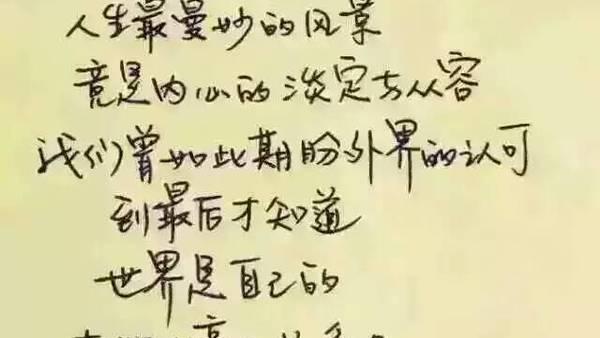 人生最曼妙的风景
竟是内心的淡定与从容
我们曾如此期盼外界的认可
到最后才知道
世界是自己的